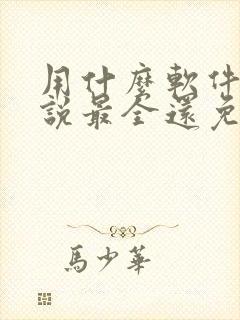 用什麼軟件
說最全還免
馬少華